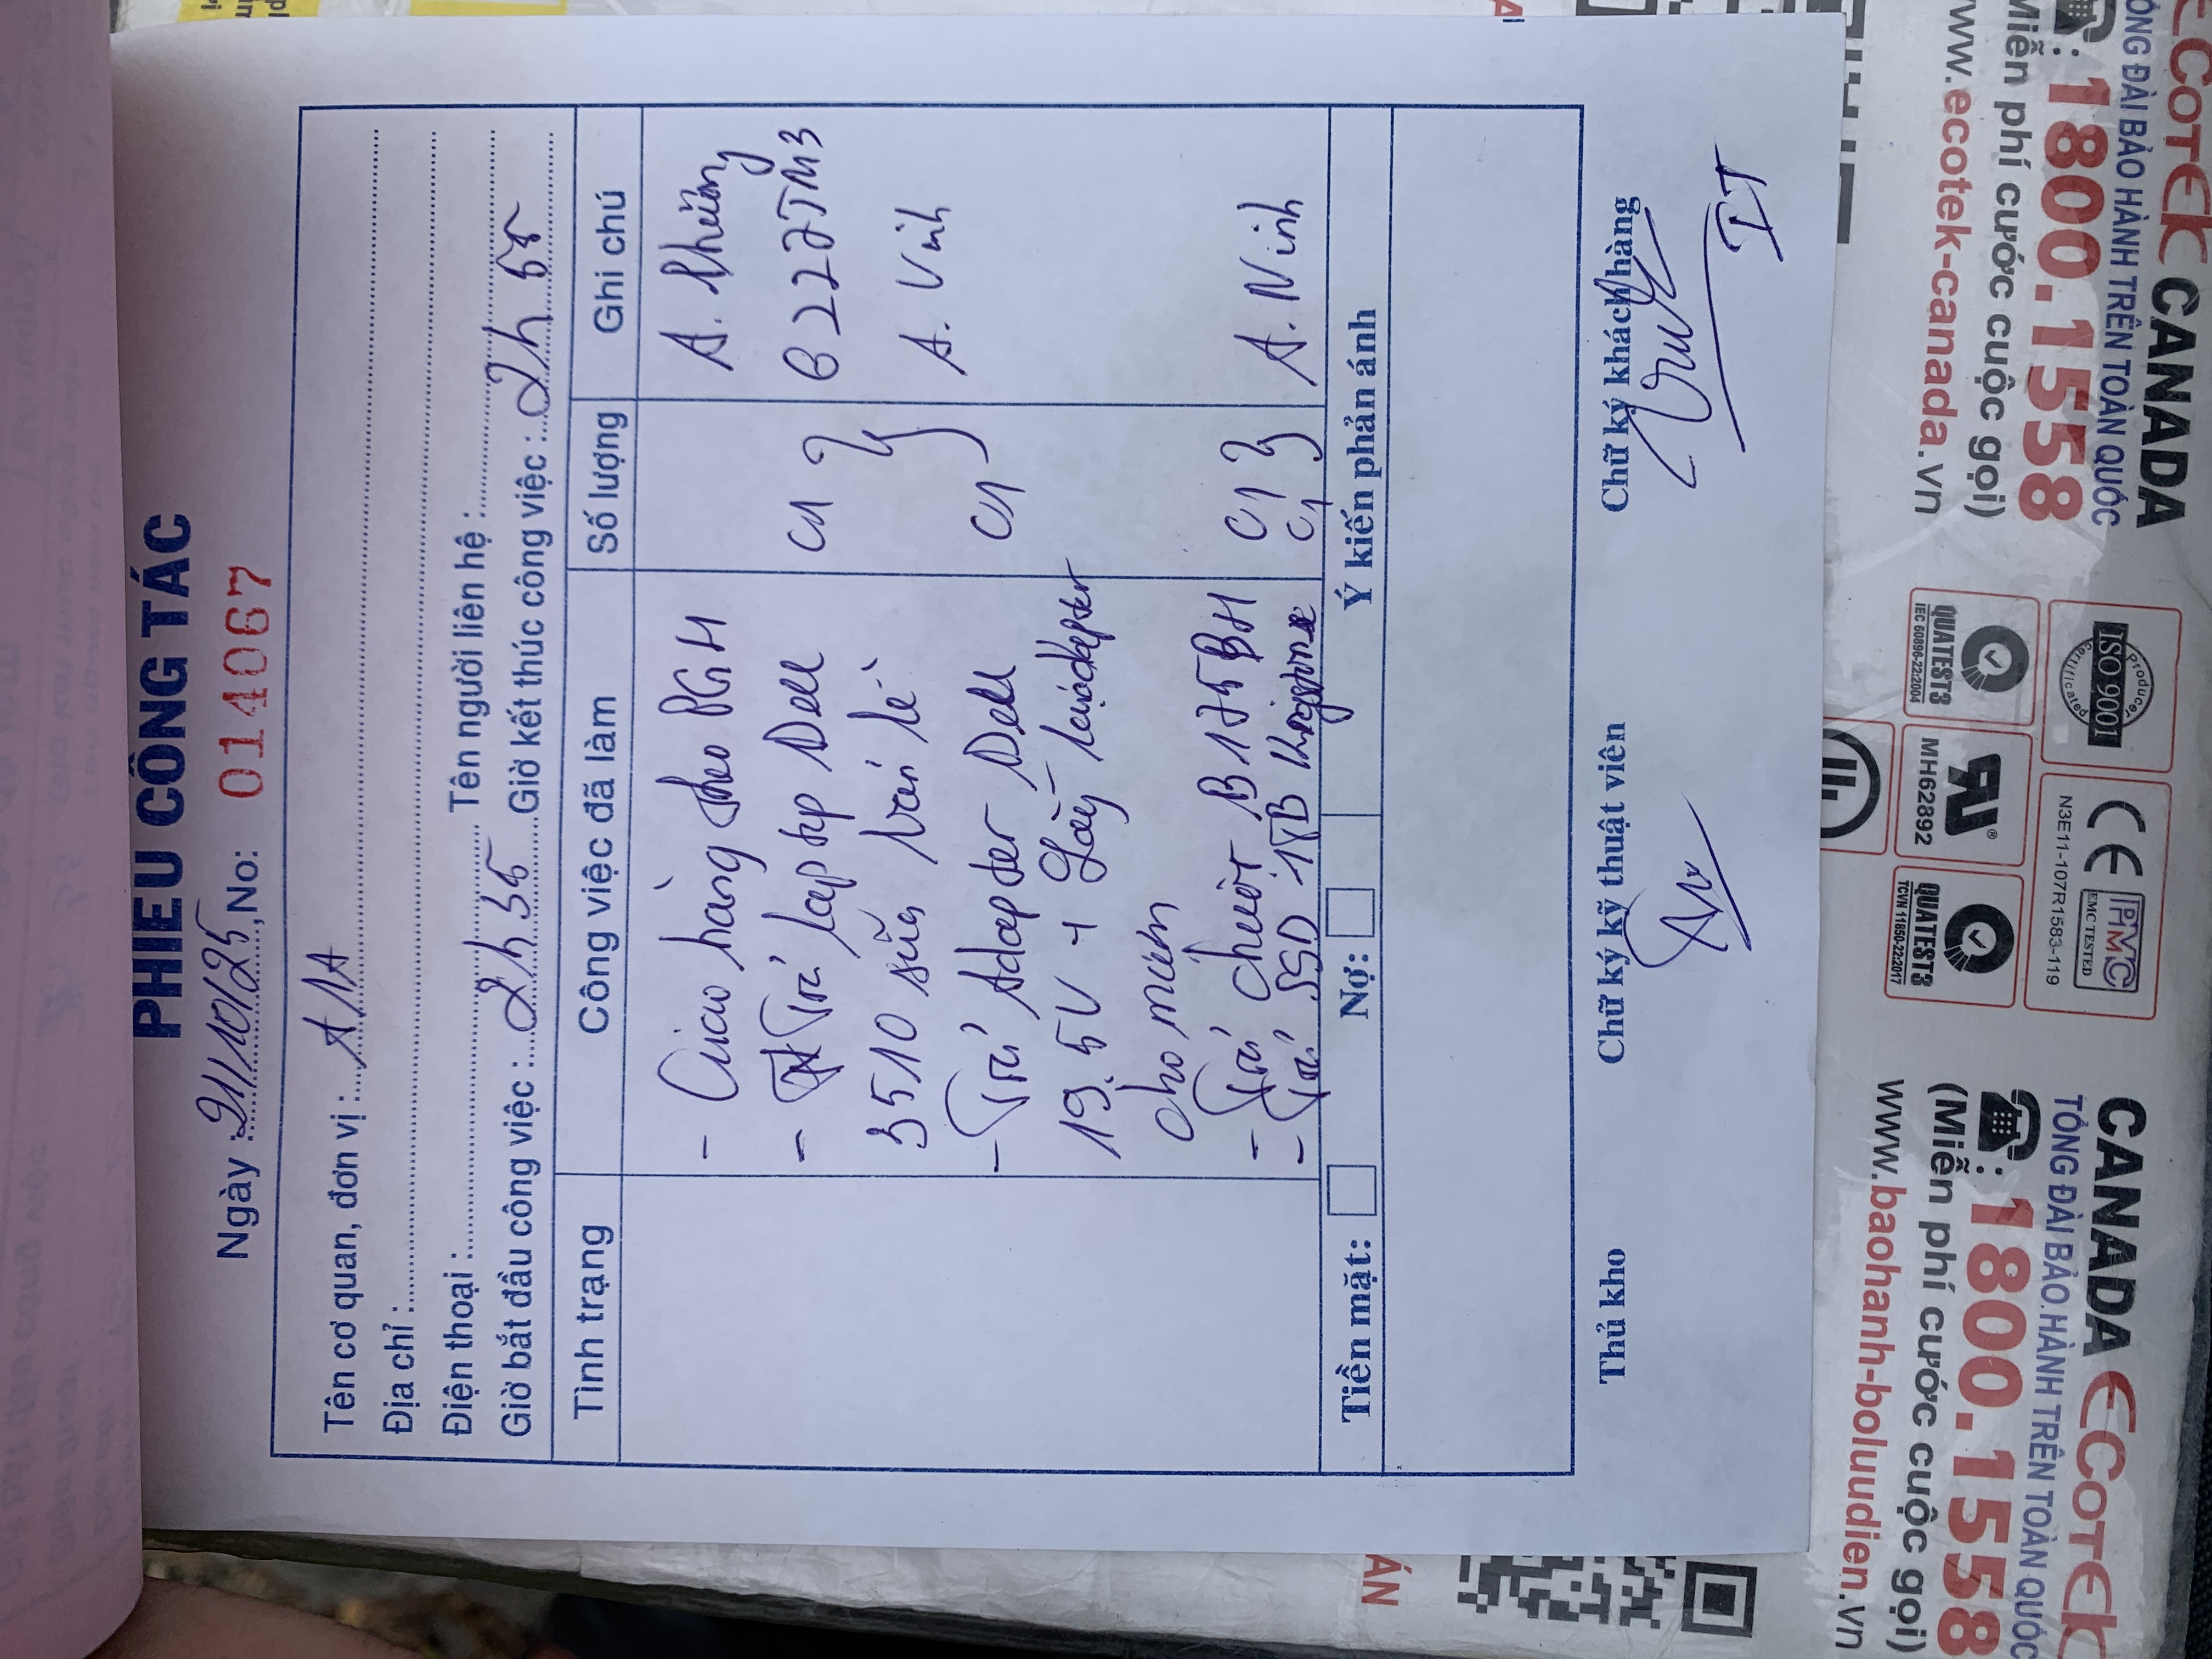 PHIẾU CÔNG TÁC
Ngày : 21/10/25, No: 014067
Tên cơ quan, đơn vị : A NA
Địa chỉ :
Điện thoại : Tên người liên hệ :
Giờ bắt đầu công việc : 2h 35 Giờ kết thúc công việc : 2h 55
Tình trạng Công việc đã làm Số lượng Ghi chú
- Giao hàng theo PGH A.
- Trả laptop Dell C1 6222TM3
3510 sửa bản lề A. Vinh
- Trả Adapter Dell C1
19.5V + Lấy adapter
cho mượn
- Trả chuột B175BH C1
- Trả SSD 1TB Kingston C1 A. Ninh
Tiền mặt: Nợ: Ý kiến phản ánh
Thủ kho Chữ ký kỹ thuật viên Chữ ký khách hàng
IT
ECOTEK CANADA
TỔNG ĐÀI BẢO HÀNH TRÊN TOÀN QUỐC
: 1800.1558
(Miễn phí cước cuộc gọi)
www.ecotek-canada.vn
QUATEST3
IEC 60896-22:2004
MH62892
QUATEST3
TCVN 11850-22:2017
ISO 9001
Producer
Certificated
N3E11-107R1583-119
EMC TESTED
IPMC
CANADA ECOTEK
TỔNG ĐÀI BẢO HÀNH TRÊN TOÀN QUỐC
: 1800.1558
(Miễn phí cước cuộc gọi)
www.baohanh-boluudien.vn
ÁN